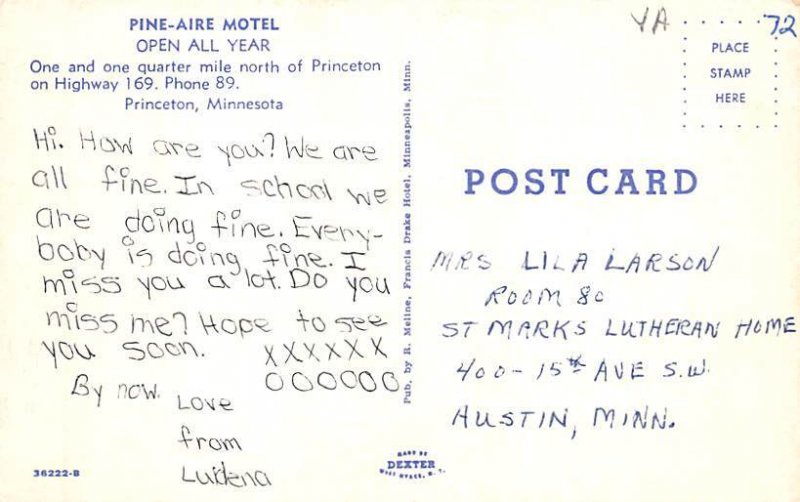 PINE-AIRE MOTEL
OPEN ALL YEAR
One and one quarter mile north of Princeton
on Highway 169. Phone 89.
Princeton, Minnesota
Hi. How are you? We are
all fine. In school we
are doing fine. Every-
boby is doing fine. I
miss you a lot. Do you
miss me? Hope to see
you soon. XXXXXX
By now. OOOOOO
Love
from
36222-B
Pub. by R. Meline, Francis Drake Hotel, Minneapolis, Minn.
YA 72
PLACE
STAMP
HERE
POST CARD
MRS LILA LARSON
ROOM 80
ST MARKS LUTHERAN HOME
400-15th AVE S.W.
AUSTIN, MINN.
MADE BY
DEXTER
WEST NYACK, N.Y.